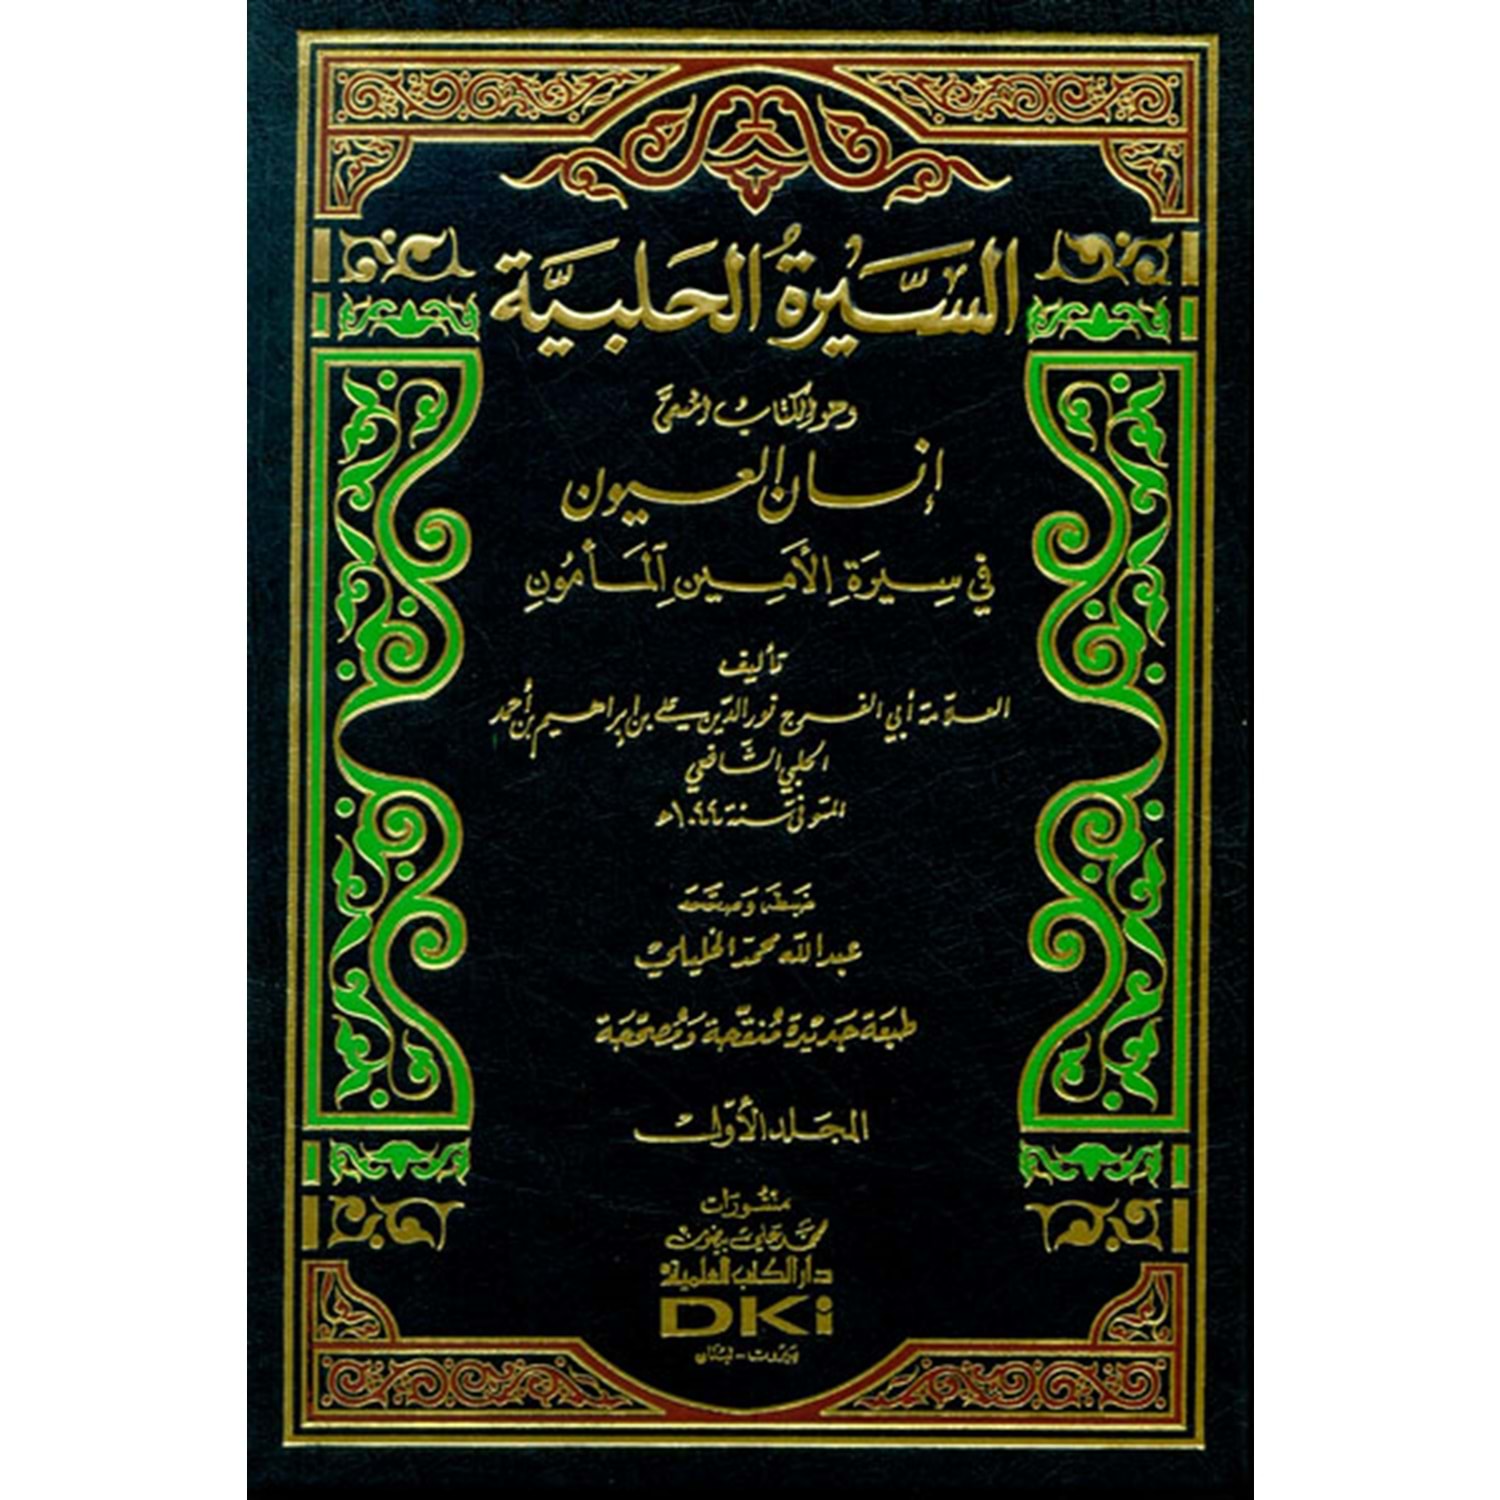 السِّيرَةُ الحَلبيَّة
وهو الكتاب المسمى
إنسان العيون
في سِيرَةِ الأَمِين المَأمُونِ
تأليف
العلامة أبي الفرج نور الدين علي بن إبراهيم بن أحمد
الحلبي الشافعي
المتوفى سنة ١٠٤٤هـ
ضبطه وصححه
عبد الله محمد الخليلي
طبعَة جَديْدة مُنقّحة وَمُصحّحَة
المجلد الأوّل
منشورات
محمد علي بيضون
دار الكتب العلمية
DKi
بيروت - لبنان